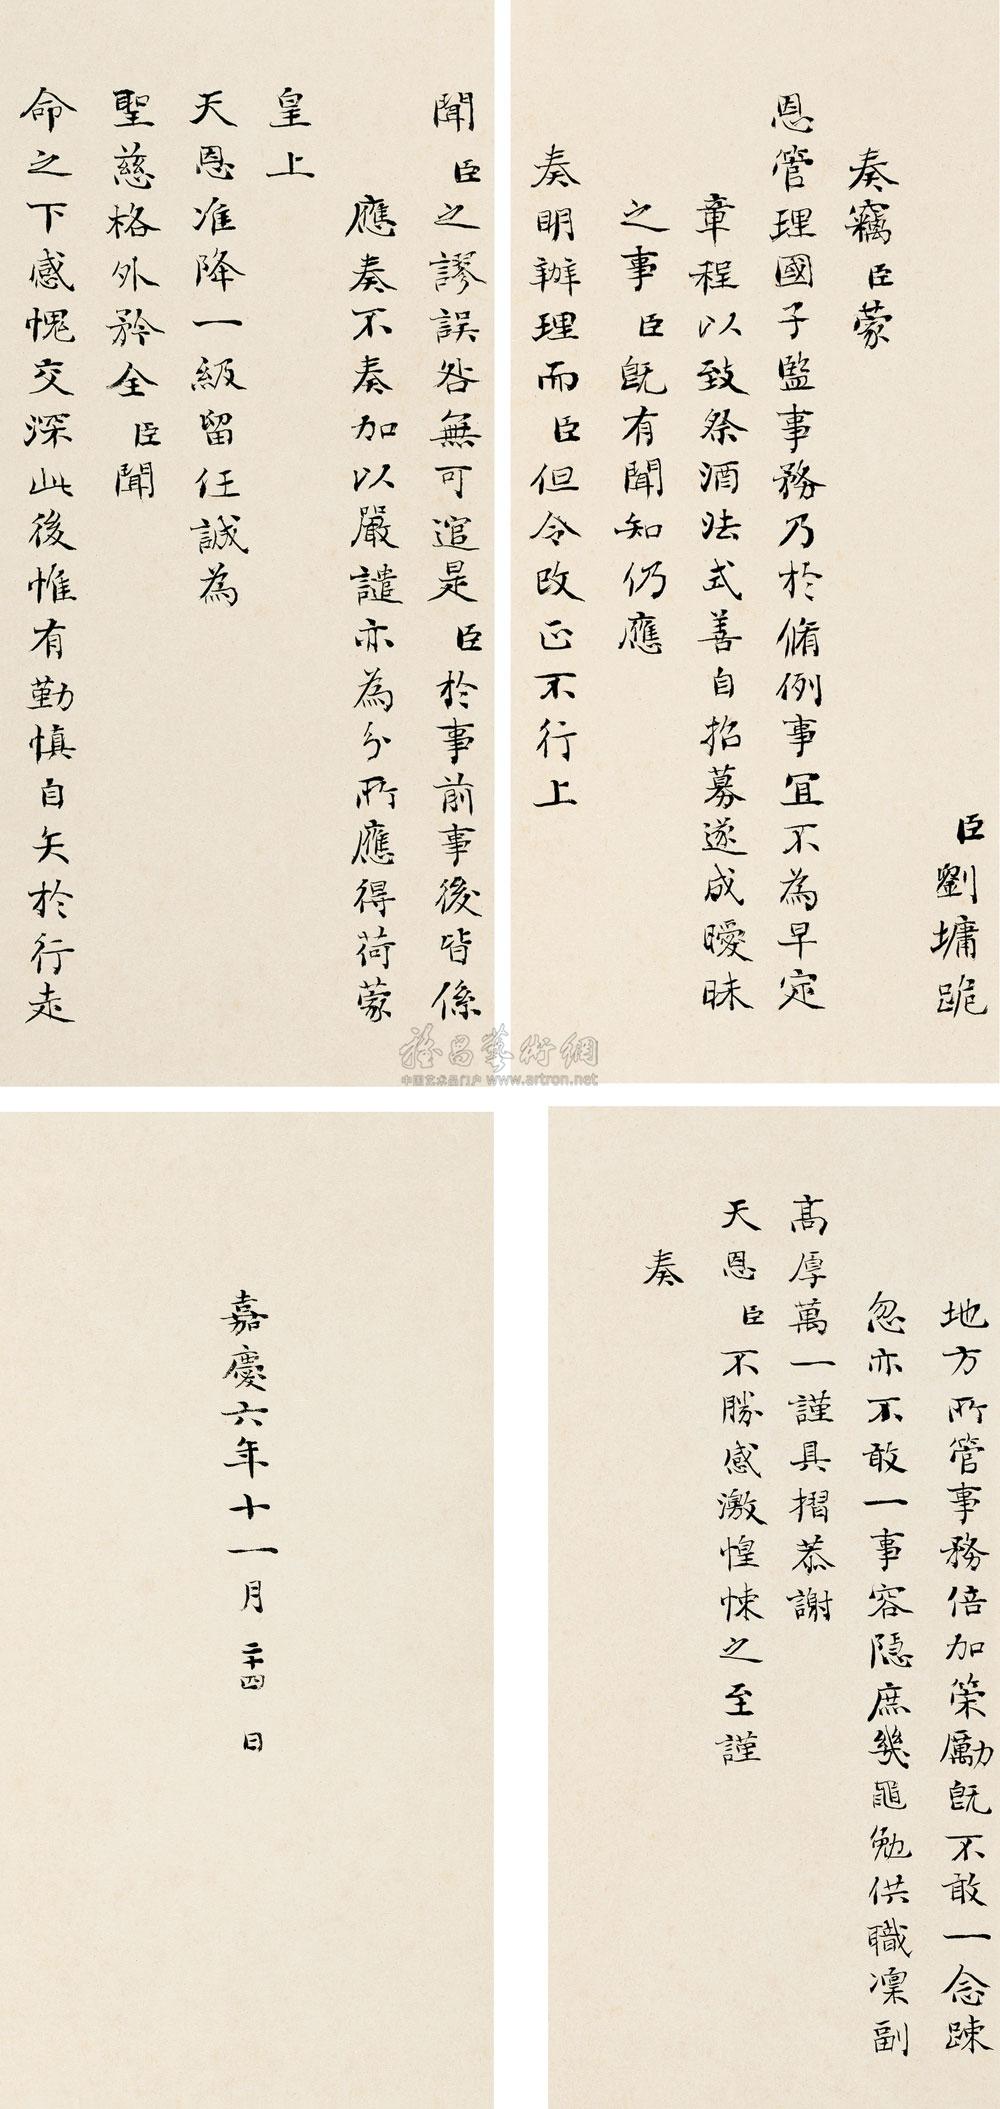 臣劉墉跪
奏竊臣蒙
恩管理國子監事務乃於脩例事宜不為早定
章程以致祭酒法式善自招募遂成曖昧
之事臣既有聞知仍應
奏明辦理而臣但令改正不行上
聞臣之謬誤咎無可逭是臣於事前事後皆係
應奏不奏加以嚴譴亦為分所應得荷蒙
皇上
天恩准降一級留任誠為
聖慈格外矜全臣聞
命之下感愧交深此後惟有勤慎自矢於行走
地方所管事務倍加策勵既不敢一念踈
忽亦不敢一事容隱庶幾黽勉供職凜副
高厚萬一謹具摺恭謝
天恩臣不勝感激惶悚之至謹
奏
嘉慶六年十一月二十四日
雅昌藝術網
中国艺术品门户 www.artron.net